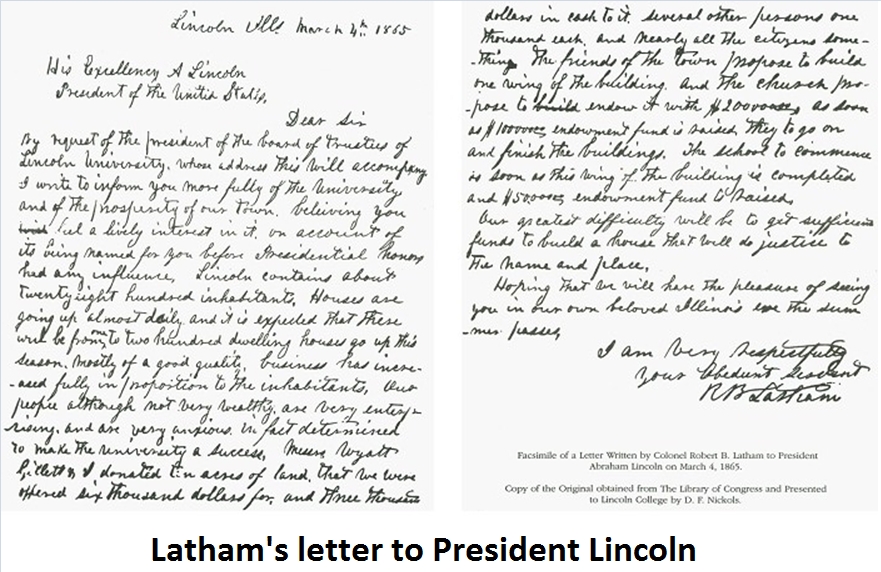 Lincoln Ills. March 4th 1865
His Excellency A Lincoln
President of the United States,
Dear Sir
By request of the president of the board of trusties of
Lincoln University, whose address this will accompany
I write to inform you more fully of the University
and of the prosperity of our town. believing you
feel a lively interest in it, on account of
its being named for you before Presidential honors
had any influence, Lincoln contains about
twenty eight hundred inhabitants, Houses are
going up almost daily and it is expected that there
will be from one to two hundred dwelling houses go up this
season, mostly of a good quality, business has incre-
-ased fully in proportion to the inhabitants, Our
people although not very wealthy, are very enterp-
rising, and are very anxious, in fact determined
to make the university a success, Messrs Wyatt
Gillett & I donated ten acres of land, that we were
offered six thousand dollars for, and three thousand
dollars in cash to it, several other persons one
thousand each, and nearly all the citizens some-
-thing. The friends of the town propose to build
one wing of the building. And the church pro-
-pose to build endow it with $20000000, as soon
as $1000000 endowment fund is raised, they to go on
and finish the buildings. The school to commence
as soon as this wing of the building is completed
and $500000 endowment fund is raised,
Our greatest difficulty will be to get sufficient
funds to build a house that will do justice to
the name and place,
Hoping that we will have the pleasure of seeing
you in our own beloved Illinois ere the sum
-mer passes,
I am very respectfully
your obedient servant
R B Latham
Facsimile of a Letter Written by Colonel Robert B. Latham to President
Abraham Lincoln on March 4, 1865.
Copy of the Original obtained from The Library of Congress and Presented
to Lincoln College by D. F. Nickols.
Latham's letter to President Lincoln